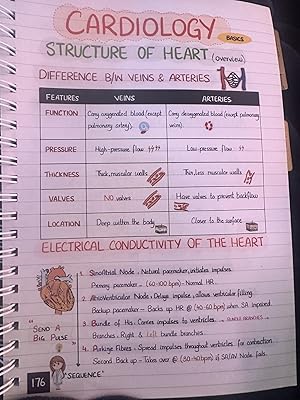 CARDIOLOGY
BASICS
STRUCTURE OF HEART (overview)
DIFFERENCE B/W VEINS & ARTERIES
FEATURES VEINS ARTERIES
FUNCTION Carry oxygenated blood (except pulmonary artery). Carry deoxygenated blood (except pulmonary vein).
PRESSURE High-pressure flow Low-pressure flow
THICKNESS Thick, muscular walls Thin, less muscular walls
VALVES NO valves Have valves to prevent backflow
LOCATION Deep within the body Closer to the surface
ELECTRICAL CONDUCTIVITY OF THE HEART
1. SinoAtrial Node: Natural pacemaker, initiates impulses.
Primary pacemaker - (60-100 bpm) - Normal HR
2. AtrioVentricular Node: Delays impulse, allows ventricular filling.
Backup pacemaker - Backs up HR @ (40-60 bpm) when SA impaired
3. Bundle of His: Carries impulses to ventricles. BUNDLE BRANCHES
Branches: Right & Left bundle branches.
4. Purkinje Fibres: Spread impulses throughout ventricles for contraction
Second Back up - Takes over @ (30-40 bpm) if SA/AV Node fails.
"SEND A
BIG PULSE"
"SEQUENCE"
176